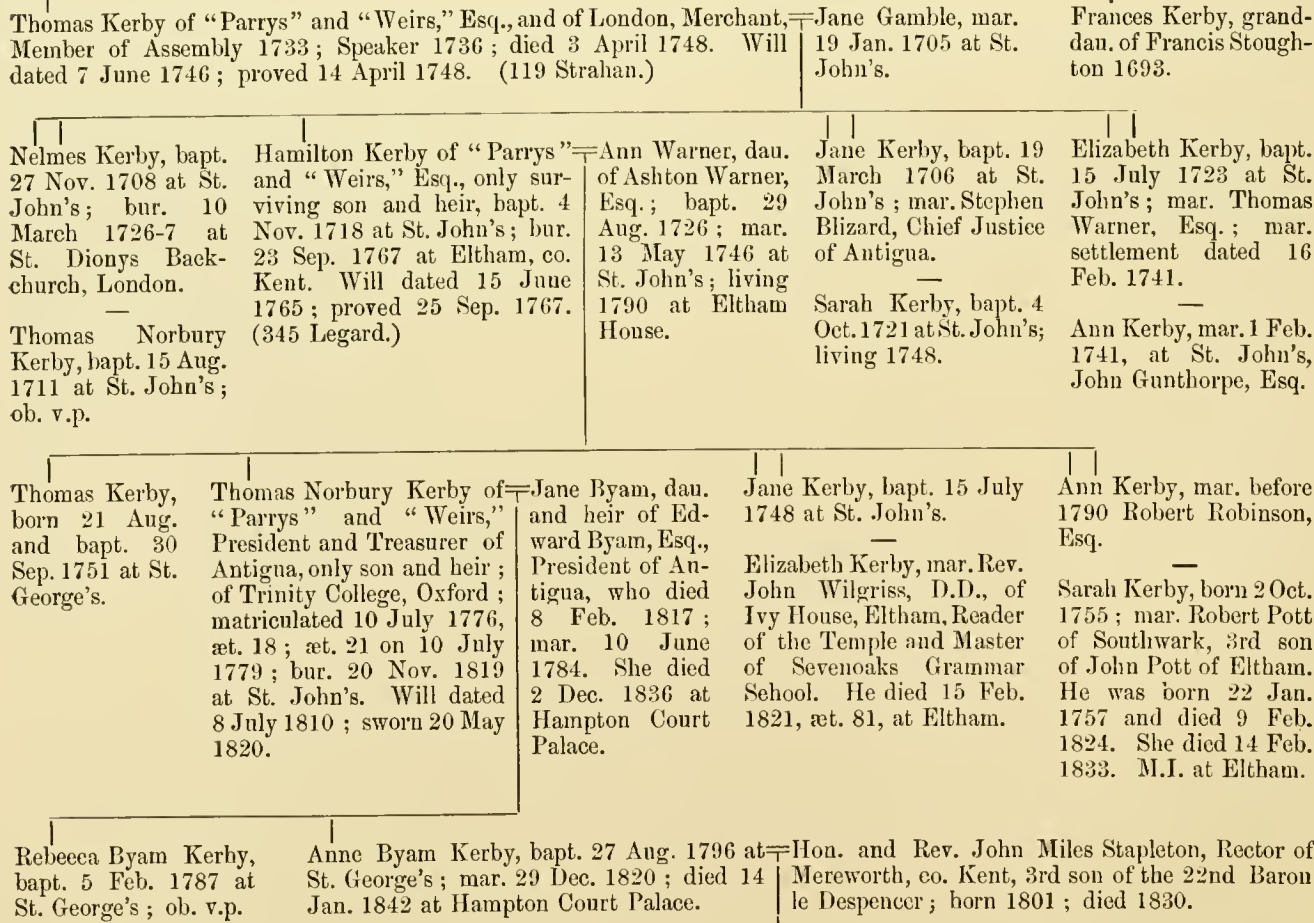 Thomas Kerby of “Parrys” and “Weirs,” Esq., and of London, Merchant,
Member of Assembly 1733 ; Speaker 1736 ; died 3 April 1748. Will
dated 7 June 1746 ; proved 14 April 1748. (119 Strahan.)
Jane Gamble, mar.
19 Jan. 1705 at St.
John's.
Frances Kerby, grand-
dau. of Francis Stough-
ton 1693.
Nelmes Kerby, bapt.
27 Nov. 1708 at St.
John's ; bur. 10
March 1726-7 at
St. Dionys Back-
church, London.
—
Thomas Norbury
Kerby, bapt. 15 Aug.
1711 at St. John's ;
ob. v.p.
Hamilton Kerby of “Parrys”
and “Weirs,” Esq., only sur-
viving son and heir, bapt. 4
Nov. 1718 at St. John's ; bur.
23 Sep. 1767 at Eltham, co.
Kent. Will dated 15 June
1765 ; proved 25 Sep. 1767.
(345 Legard.)
Ann Warner, dau.
of Ashton Warner,
Esq. ; bapt. 29
Aug. 1726 ; mar.
13 May 1746 at
St. John's ; living
1790 at Eltham
House.
Jane Kerby, bapt. 19
March 1706 at St.
John's ; mar. Stephen
Blizard, Chief Justice
of Antigua.
—
Sarah Kerby, bapt. 4
Oct. 1721 at St. John's;
living 1748.
Elizabeth Kerby, bapt.
15 July 1723 at St.
John's ; mar. Thomas
Warner, Esq. ; mar.
settlement dated 16
Feb. 1741.
—
Ann Kerby, mar. 1 Feb.
1741, at St. John's,
John Gunthorpe, Esq.
Thomas Kerby,
born 21 Aug.
and bapt. 30
Sep. 1751 at St.
George's.
Thomas Norbury Kerby of
“Parrys” and “Weirs,”
President and Treasurer of
Antigua, only son and heir ;
of Trinity College, Oxford ;
matriculated 10 July 1776,
æt. 18 ; æt. 21 on 10 July
1779 ; bur. 20 Nov. 1819
at St. John's. Will dated
8 July 1810 ; sworn 20 May
1820.
Jane Byam, dau.
and heir of Ed-
ward Byam, Esq.,
President of An-
tigua, who died
8 Feb. 1817 ;
mar. 10 June
1784. She died
2 Dec. 1836 at
Hampton Court
Palace.
Jane Kerby, bapt. 15 July
1748 at St. John's.
—
Elizabeth Kerby, mar. Rev.
John Wilgriss, D.D., of
Ivy House, Eltham, Reader
of the Temple and Master
of Sevenoaks Grammar
School. He died 15 Feb.
1821, æt. 81, at Eltham.
Ann Kerby, mar. before
1790 Robert Robinson,
Esq.
—
Sarah Kerby, born 2 Oct.
1755 ; mar. Robert Pott
of Southwark, 3rd son
of John Pott of Eltham.
He was born 22 Jan.
1757 and died 9 Feb.
1824. She died 14 Feb.
1833. M.I. at Eltham.
Rebecca Byam Kerby,
bapt. 5 Feb. 1787 at
St. George's ; ob. v.p.
Anne Byam Kerby, bapt. 27 Aug. 1796 at
St. George's ; mar. 29 Dec. 1820 ; died 14
Jan. 1842 at Hampton Court Palace.
Hon. and Rev. John Miles Stapleton, Rector of
Mereworth, co. Kent, 3rd son of the 22nd Baron
le Despencer ; born 1801 ; died 1830.